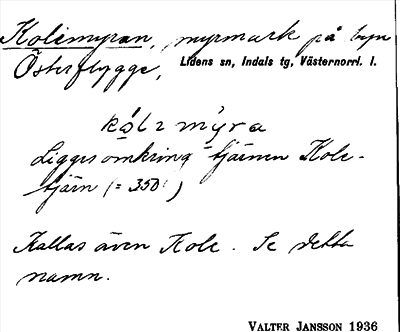 Kolimyran, myrmark på byn
Österflygge, Lidens sn, Indals tg, Västernorrl. l.
kólımỳra
Ligger omkring tjärnen Kole-
tjärn (= 350)
Kallas även Kole. Se detta
namn.
VALTER JANSSON 1936